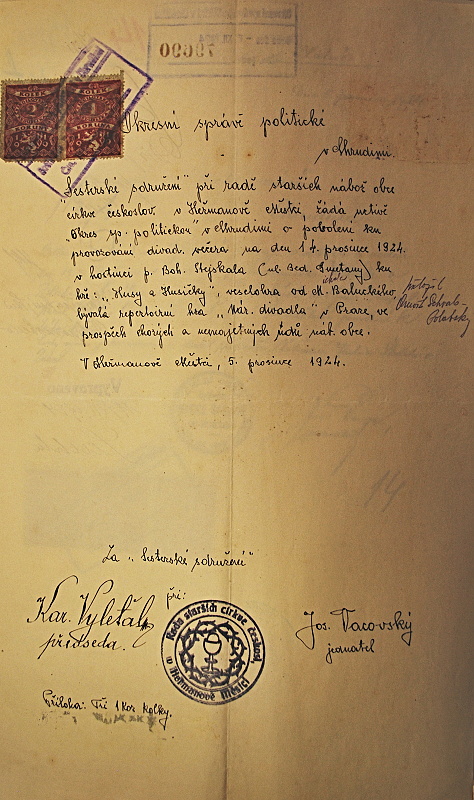 70690
KOLEK
KORUNA
KOLEK
KORUNA
Okresní správě politické
v Chrudimi.
"Sesterské sdružení" při radě starších nábož obce
církve českoslov. v Heřmanově Městci, žádá uctivě
Okres sp. politickou v Chrudimi o povolení ku
provozování divad. večera na den 14. prosince 1924.
v hostinci p. Boh. Stejskala (ul. Bed. Smetany) ku
hře: "Husy a Husičky", veselohra od M. Baluckého
přeložil
bývalá repertoirní hra "Nár. divadla" v Praze, ve
prospěch chorých a nemajetných údů náb. obce.
V Heřmanově Městci, 5. prosince 1924.
Vypraveno
14
Za "Sesterské sdružení"
při:
Kar. Vyletal
předseda.
Rada starších církve českosl.
v Heřmanově Městci
Jos. Vacovský
jednatel
Příloha: Tři 1 Kor kolky.